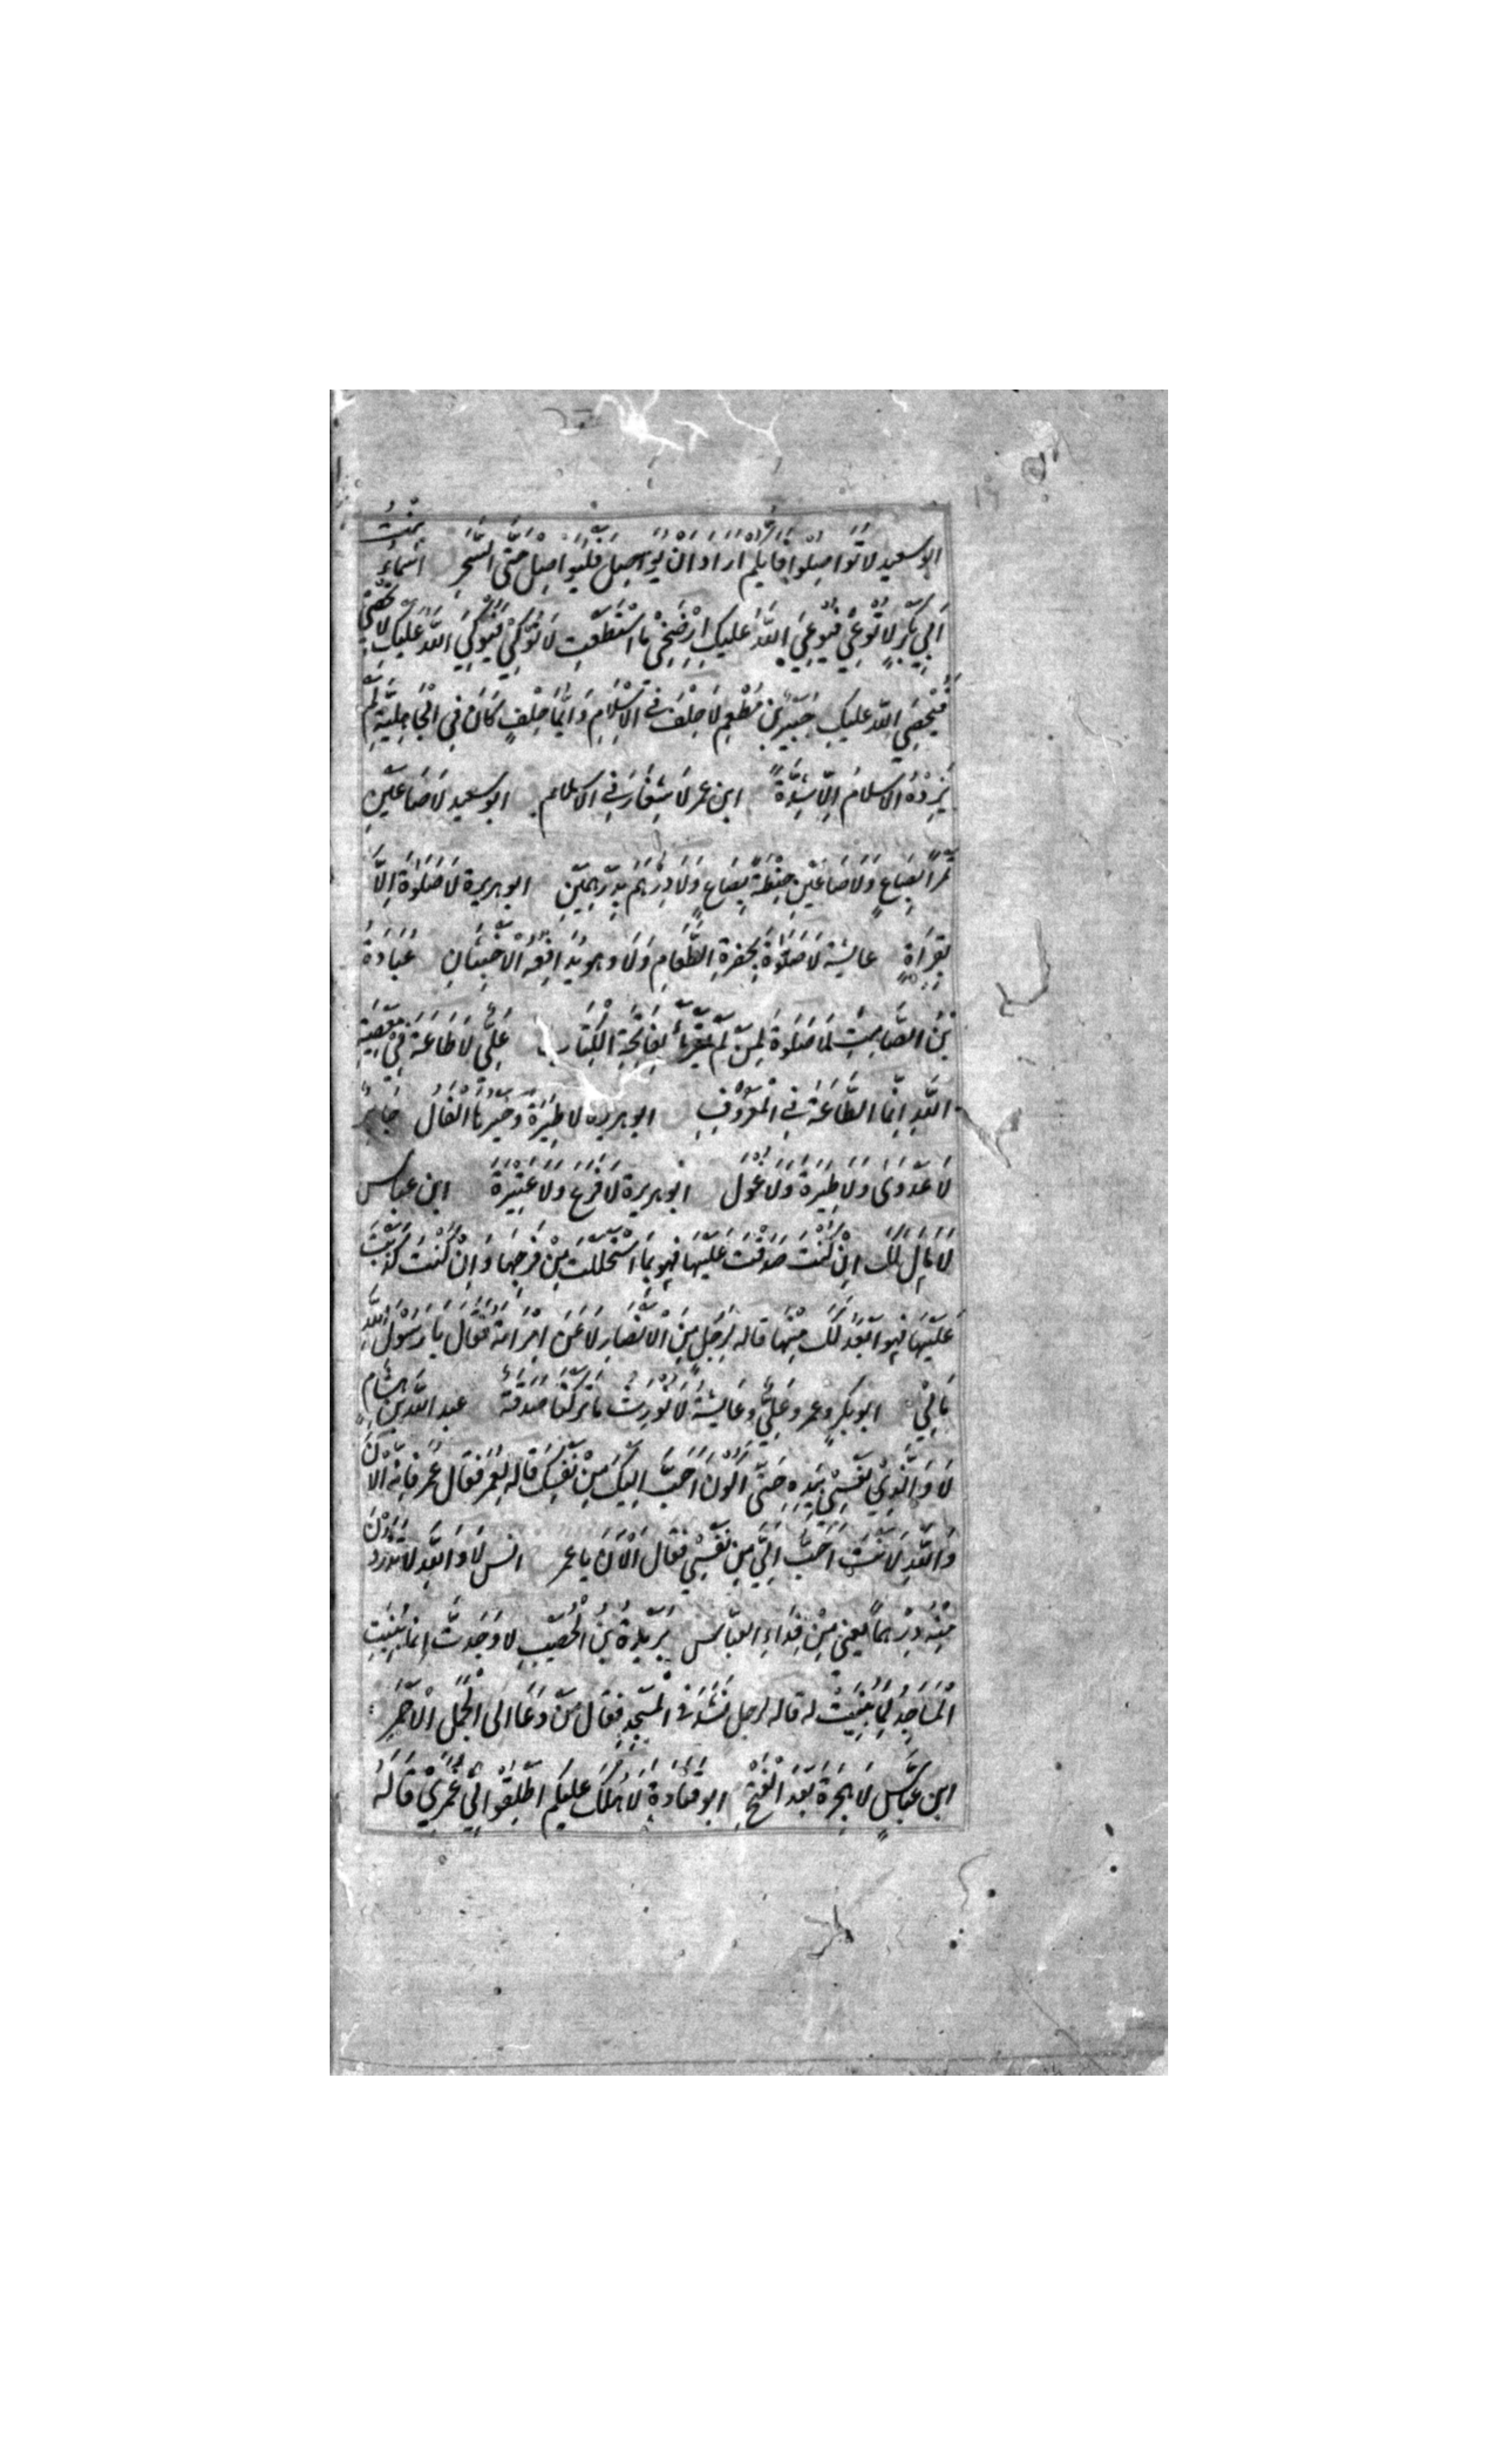 ابو سعيد لَا تُوَاصِلُوا فَاَيُّكُم اَرَادَ اَن يُوَاصِلَ فَلْيُوَاصِلْ حَتَّى السَّحَرِ اَسْمَاءُ بِنْتُ
اَبِي بَكْرٍ لَا تُوعِي فَيُوعِيَ اللّٰهُ عَلَيكِ اِرْضَخِي مَا اسْتَطَعْتِ لَا تُوْكِي فَيُوكِيَ اللّٰهُ عَلَيكِ لَا تُحْصِي
فَيُحْصِيَ اللّٰه عليكِ جُبَيْرُ بْنُ مُطْعِمٍ لَا حِلْفَ فِي الْاِسْلَامِ وَاَيُّمَا حِلْفٍ كَانَ فِي الْجَاهِلِيَّةِ لَمْ
يَزِدْهُ الْاِسلامُ اِلَّا شِدَّةً ابن عمر لَا شِغَارَ فِي الاسلام ابو سعيد لَا صَاعَيْنِ
تَمْرًا بِصَاعٍ وَلَا صَاعَيْنِ حِنْطَةً بِصَاعٍ وَلَا دِرْهَمَ بِدِرْهَمَيْنِ ابو هريرة لَا صَلٰوةَ اِلَّا
بِقِرَاءَةٍ عايشة لَا صَلٰوةَ بِحَضْرَةِ الطَّعَامِ وَلَا وهو يُدَافِعُه الْاَخْبَثَانِ عُبَادَةُ
بْنُ الصَّامِتِ لَا صَلٰوةَ لِمَنْ لَمْ يَقْرَأْ بِفَاتِحَةِ الْكِتَابِ عَلِيٌّ لَا طَاعَةَ فِي مَعْصِيَةِ
اللّٰهِ اِنَّمَا الطَّاعَةُ فِي الْمَعْرُوفِ ابو هريرة لَا طِيَرَةَ وَخَيْرُهَا الْفَالُ جَابِرٌ
لَا عَدْوَى وَلَا طِيَرَةَ وَلَا غُوْلَ ابو هريرة لَا فَرَعَ وَلَا عَتِيْرَةَ ابن عباس
لَا مَالَ لَكَ اِنْ كُنْتَ صَدَقْتَ عَلَيْهَا فهو بِمَا اسْتَحْلَلْتَ مِنْ فَرْجِهَا وَاِنْ كُنْتَ كَذَبْتَ
عَلَيْهَا فهو اَبْعَدُ لَكَ مِنْهَا قاله لِرَجُلٍ مِنَ الْاَنْصَارِ لَاعَنَ امْرَاَتَهُ فَقَالَ يَا رَسُولَ اللّٰهِ
مَالِيْ ابو بكرٍ وعمر وعَلِيٌّ وعَايشةُ لَا نُورِثُ مَا تَرَكْنَا صَدَقَةٌ عبد اللّٰه بن هِشَامٍ
لَا وَالَّذِي نَفْسِي بِيَدِهِ حَتَّى اَكُونَ اَحَبَّ اِلَيكَ مِنْ نَفْسِكَ قَالَه لِعُمَرَ فَقَالَ عُمَر فَاِنَّه الْاٰنَ
وَاللّٰهِ لَاَنْتَ اَحَبُّ اِلَيَّ مِن نَفْسِي فقال اَلْاٰنَ يا عمر انس لَا وَاللّٰهِ لَا تَذَرُوْنَ
مِنْهُ دِرْهَمًا يعني مِنْ فِدَاءِ العَبَّاسِ بُرَيْدَةُ بْنُ الْحُصَيْبِ لا وَجَدْتَ اِنَّمَا بُنِيَتِ
الْمَسَاجِدُ لِمَا بُنِيَتْ له قاله لرجل نَشَدَ فِي الْمَسْجِدِ فقال مَنْ دَعَا اِلَى الْجَمَلِ الْاَحْمَرِ
ابن عَبَّاسٍ لَا هِجْرَةَ بَعْدَ الْفَتْحِ ابو قتادةَ لَا هُلْكَ عليكم اَطْلِقُوا لِي غُمَرِي قَالَهُ